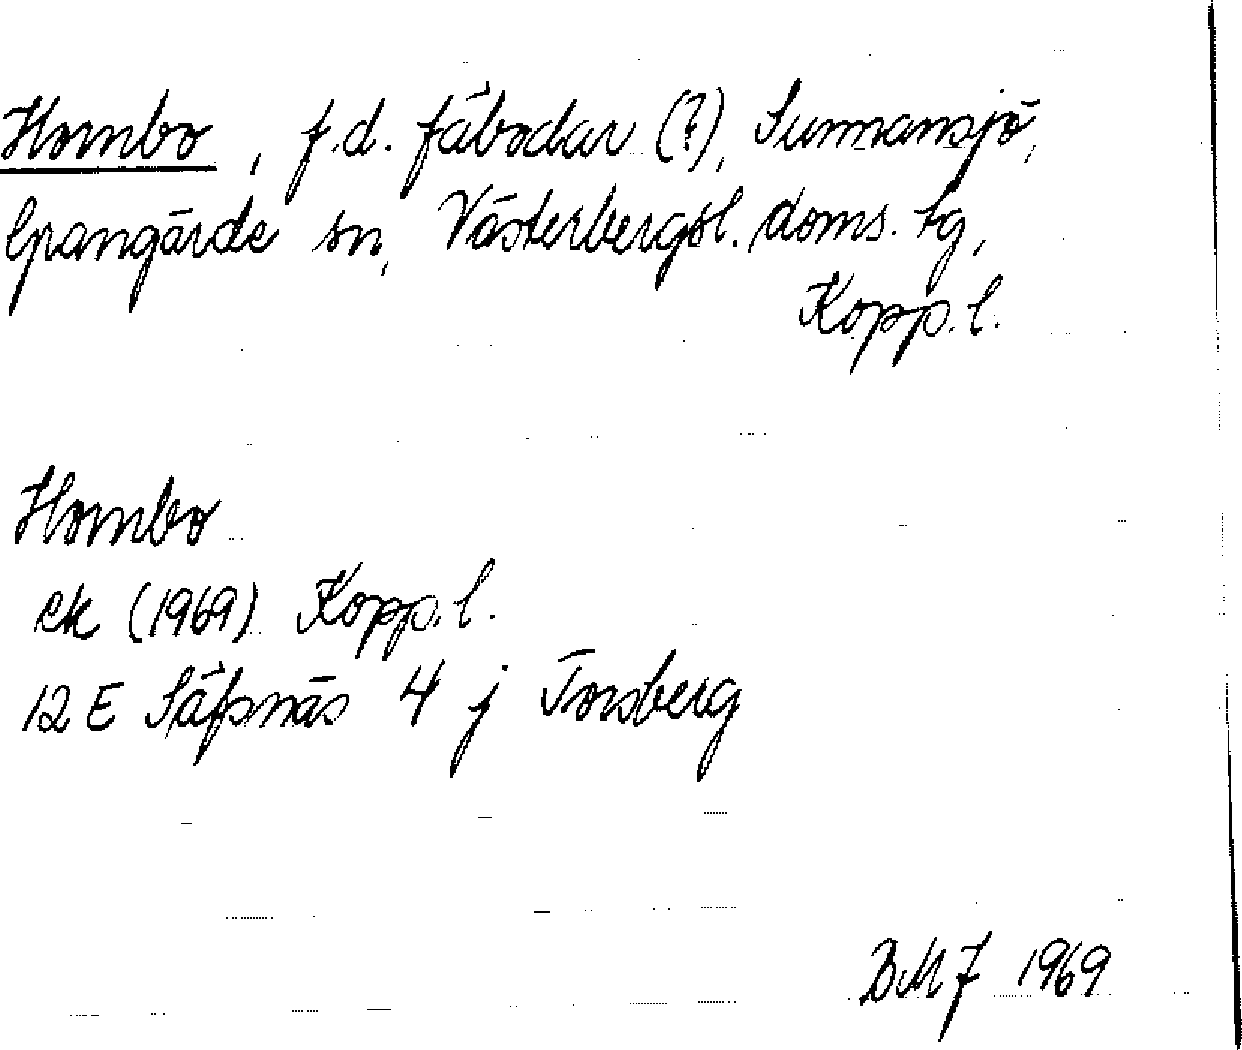 Hornbo, f.d. fäbodar (?), Sunnansjö,
Grangärde sn, Västerbergsl. doms. tg,
Kopp. l.
Hornbo
ek (1969) Kopp. l.
12 E Säfsnäs 4 j Torsberg
BMF 1969